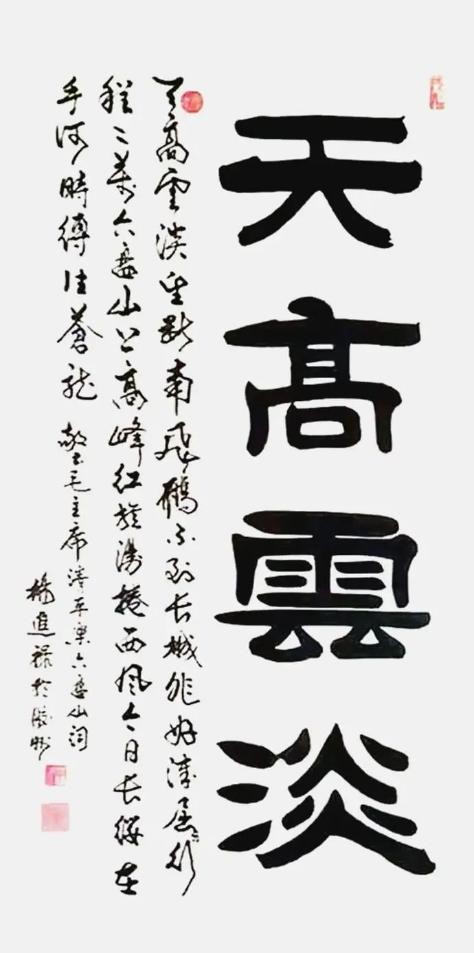 天高雲淡
天高雲淡望斷南飛鴈不到長城非好漢屈行
程二萬六盤山上高峰紅旗漫捲西風今日長纓在
手何時縛住蒼龍 敬書毛主席清平樂六盤山詞
楊進祿於